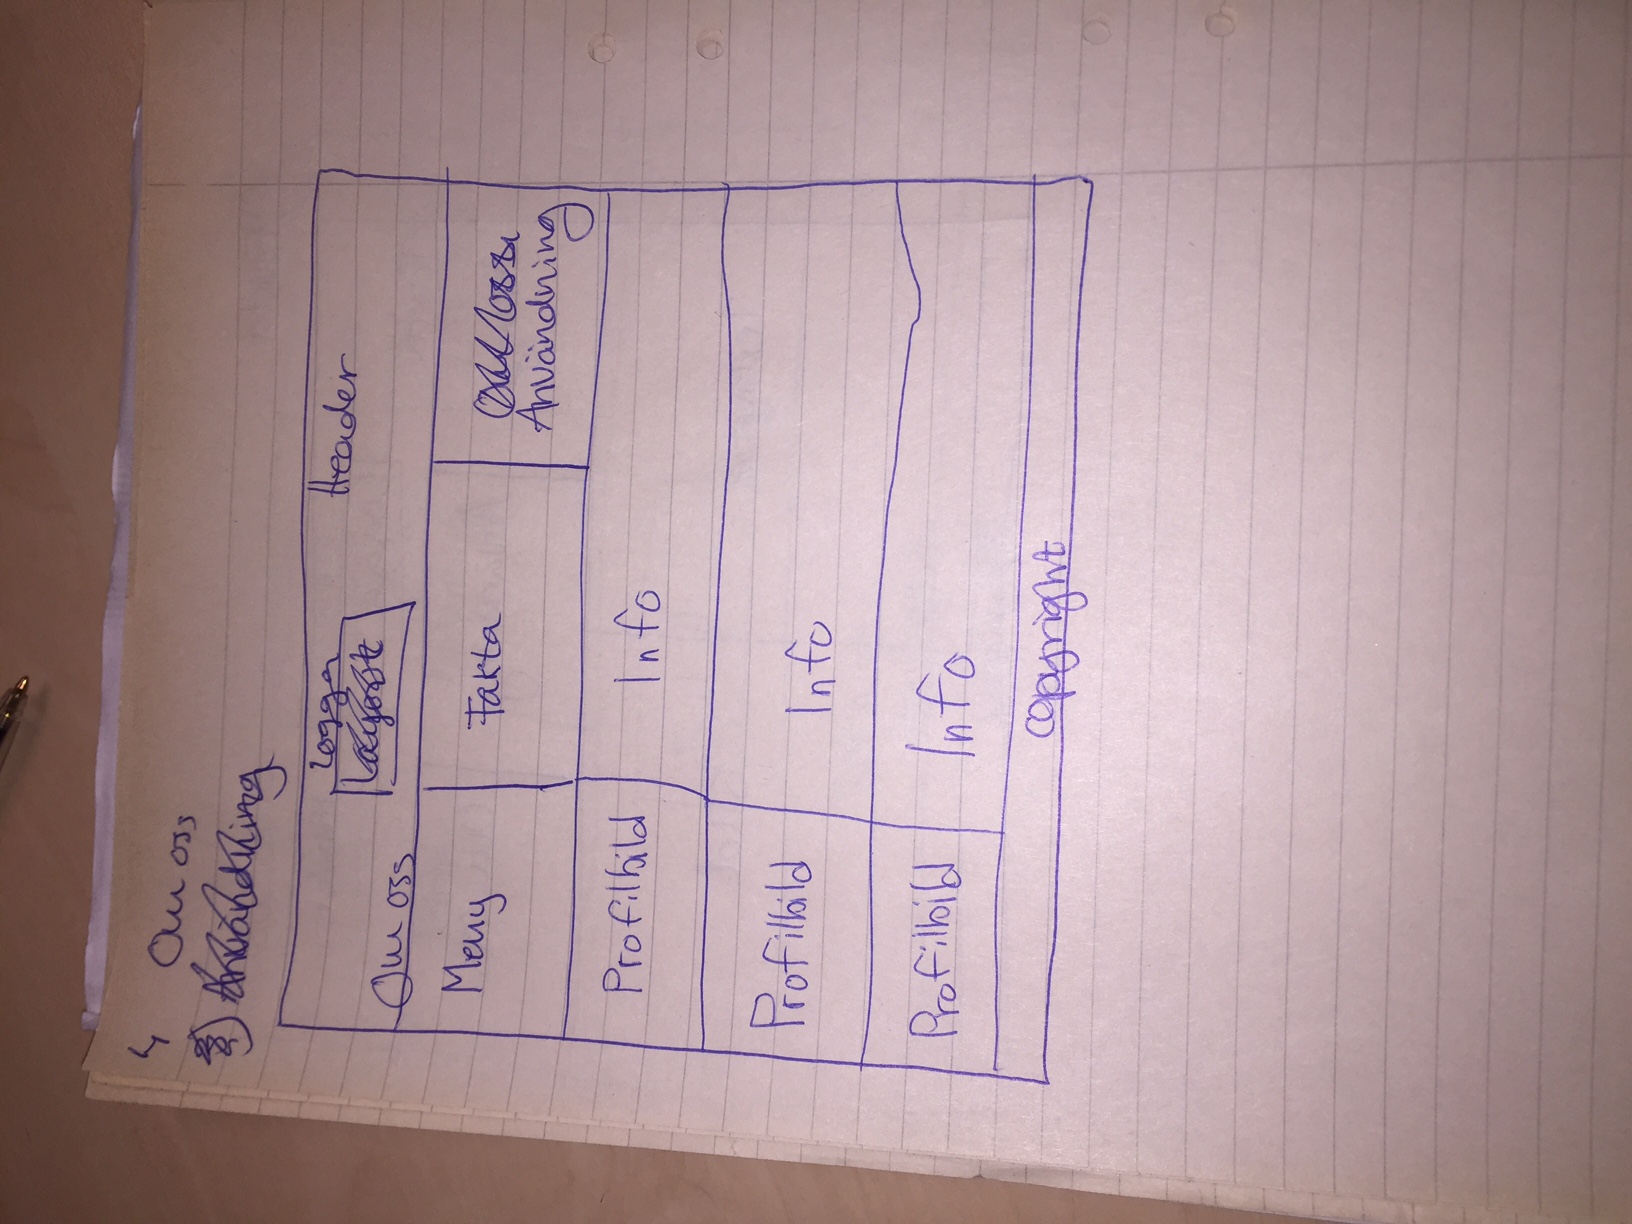 4 Om oss
Användning
Logga
Header
Layout
Om oss
Meny Fakta Om oss
Användning
Profilbild Info
Profilbild Info
Profilbild Info
copyright